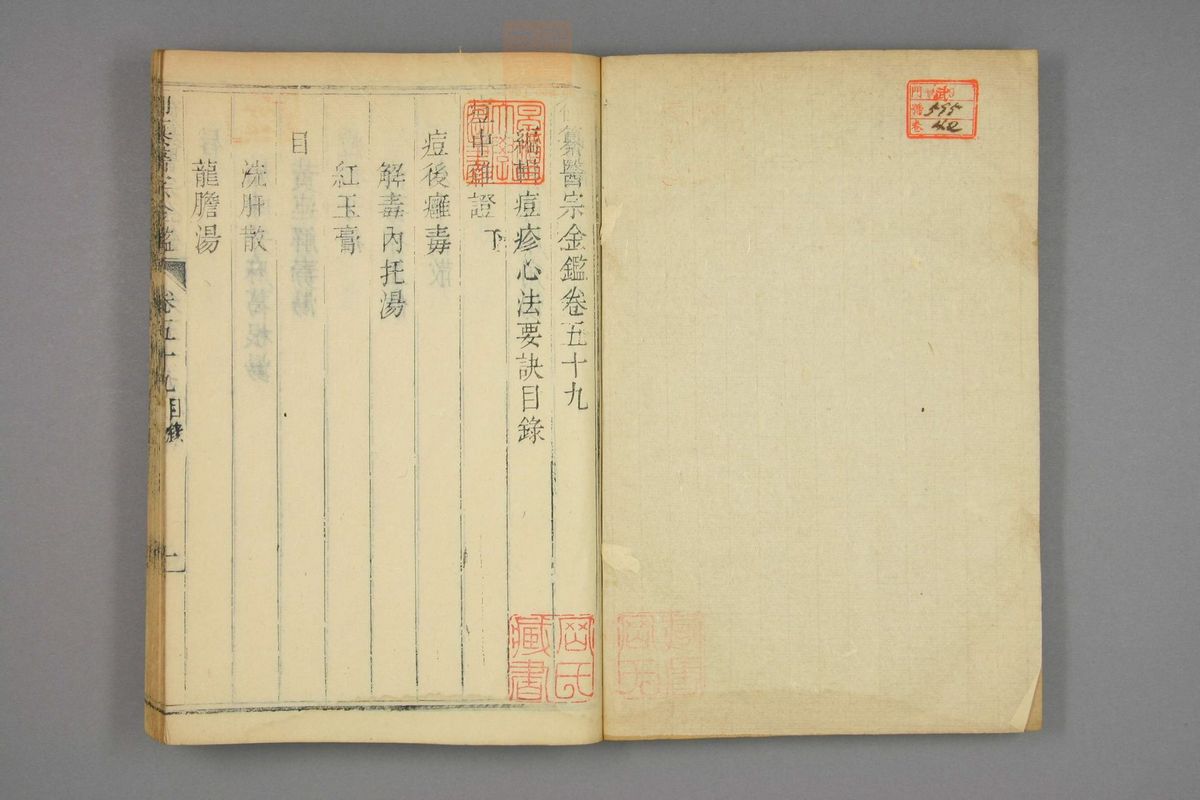 纂醫宗金鑑卷五十九
編輯痘疹心法要訣目錄
痘中雜證下
痘後癰毒
解毒內托湯
紅玉膏
目
洗肝散
龍膽湯
卷五十九 目錄
一
岡氏藏書
門
番 595
卷 42